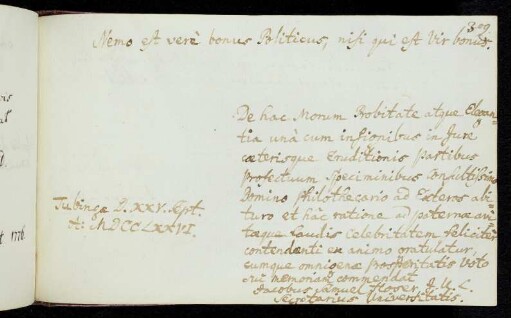 309
Nemo est verè bonus Politicus, nisi qui est Vir bonus.
De hac Morum Probitate atque Elegan-
tia unà cum insignioribus in Jure
caeterisque Eruditionis partibus
profectuum speciminibus Consultissimo
Domino philothecario ad Exteros abi-
turo et hac ratione ad paternae avi-
taeque Laudis Celebritatem feliciter
contendenti ex animo gratulatur,
eumque omnigenae prosperitatis Voto
sui memoriam commendat
Jacobus Samuel Hoser. J. U. L.
Secretarius Universitatis.
Tubingae D. XXV. Sept.
A. MDCCLXXVI.
t 1776.